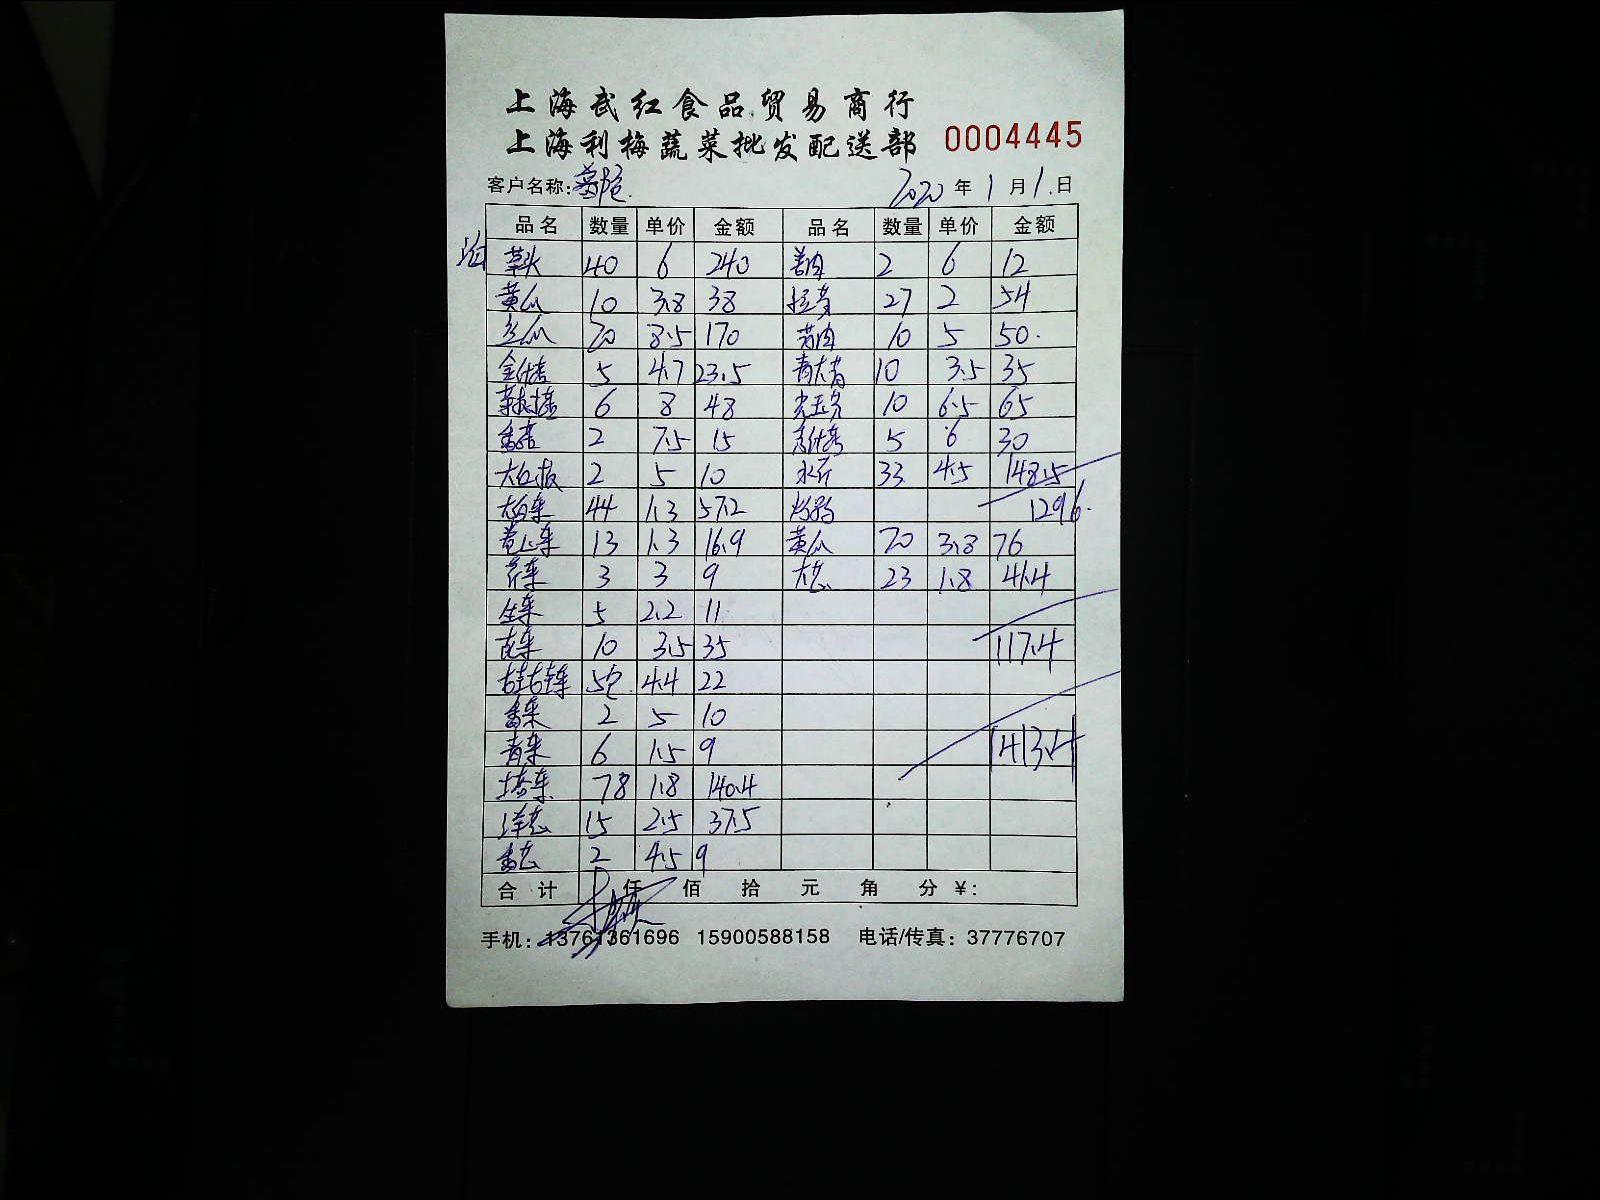 上海武红食品贸易商行
上海利梅蔬菜批发配送部 0004445
客户名称: 2020 年 1 月 1 日
品名 数量 单价 金额 品名 数量 单价 金额
草头 40 6 240 姜肉 2 6 12
黄瓜 10 3.8 38 27 2 54
丝瓜 20 8.5 170 10 5 50.
金针菇 5 4.7 23.5 青大 10 3.5 35
6 8 48 10 6.5 65
香菇 2 7.5 15 5 6 30
大红椒 2 5 10 水芹 33 4.5 148.5
大白菜 44 1.3 57.2 1296.
卷心菜 13 1.3 16.9 黄瓜 20 3.8 76
芹菜 3 3 9 大葱 23 1.8 41.4
生菜 5 2.2 11
菠菜 10 3.5 35 117.4
5包 4.4 22
香菜 2 5 10
青菜 6 1.5 9 1413.4
塔菜 78 1.8 140.4
洋葱 15 2.5 37.5
香葱 2 4.5 9
合计 仟 佰 拾 元 角 分 ¥:
手机: 13761361696 15900588158 电话/传真: 37776707